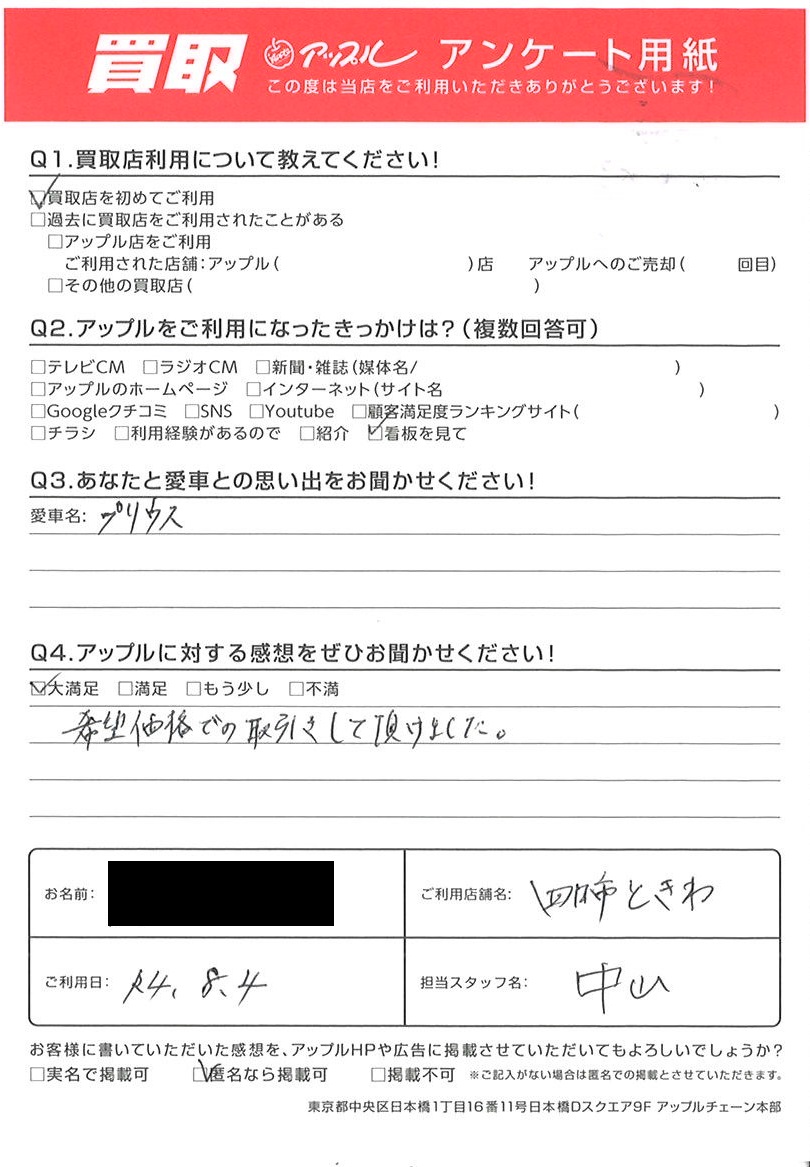 買取 アップル アンケート用紙
この度は当店をご利用いただきありがとうございます!
Q1.買取店利用について教えてください!
☑買取店を初めてご利用
□過去に買取店をご利用されたことがある
□アップル店をご利用
ご利用された店舗:アップル( )店 アップルへのご売却( 回目)
□その他の買取店( )
Q2.アップルをご利用になったきっかけは?(複数回答可)
□テレビCM □ラジオCM □新聞・雑誌(媒体名/ )
□アップルのホームページ □インターネット(サイト名 )
□Googleクチコミ □SNS □Youtube □顧客満足度ランキングサイト( )
□チラシ □利用経験があるので □紹介 ☑看板を見て
Q3.あなたと愛車との思い出をお聞かせください!
愛車名: プリウス
Q4.アップルに対する感想をぜひお聞かせください!
☑大満足 □満足 □もう少し □不満
希望価格での取引きして頂けました。
お名前:
ご利用店舗名: ときわ
ご利用日: R4.8.4
担当スタッフ名: 中山
お客様に書いていただいた感想を、アップルHPや広告に掲載させていただいてもよろしいでしょうか?
□実名で掲載可 ☑匿名なら掲載可 □掲載不可 ※ご記入がない場合は匿名での掲載とさせていただきます。
東京都中央区日本橋1丁目16番11号日本橋Dスクエア9F アップルチェーン本部